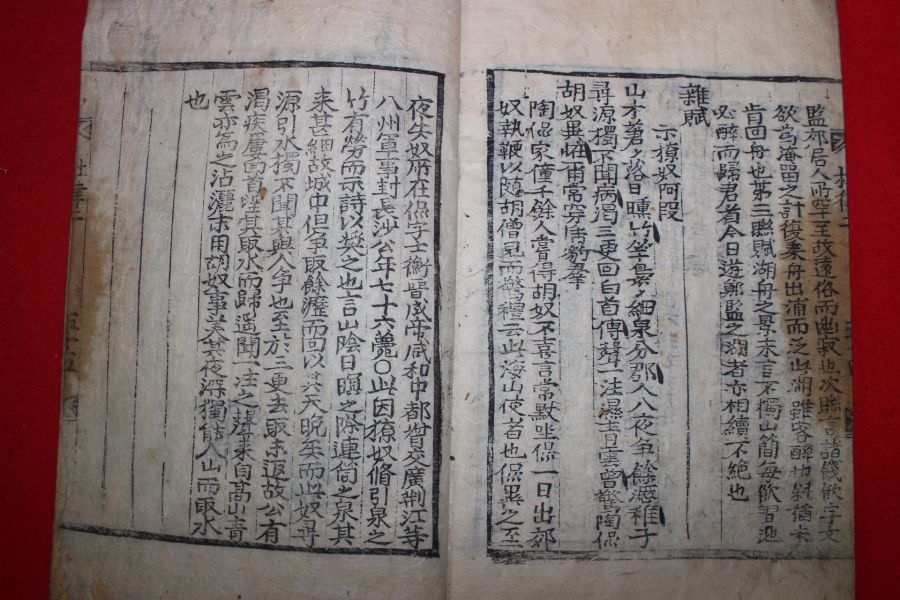 監郊居人所罕至故遠俗而幽寂也次聯言諸餞飲字文
欲為淹留之計復乘舟出浦而泛此湖雖客醉也斜猶未
肯回舟也第三聯賦湖舟之景末言不獨山簡每飲習池
必醉而歸君看今日遊鄭監之湖者亦相續不絶也
雜賦
示獠奴阿段
山木蒼〻落日曛竹竿裊〻細泉分郡人入夜爭餘瀝稚子
尋源獨不聞病渴三更回白首傳聲一注濕青雲曾驚陶侃
胡奴異怪爾常穿虎豹羣
陶侃家僮千餘人嘗得胡奴不喜言常默坐侃一日出郊
奴執鞭以隨胡僧見而驚禮云此海山使者也侃異之至
夜失奴所在侃字士衡晉成帝咸和中都督交廣荆江等
八州軍事封長沙公年七十六薨○此因獠奴脩引泉之
竹有勞而示詩以獎之也言山陰日暝之際連筒之泉其
来甚細故城中但爭取餘瀝而回以其天晚矣而此奴尋
源引水獨不聞其與人爭也至於三更去取未返故公有
渴疾屢回首望其取水而歸遥聞一注之聲来自高山青
雲亦為之沾灑末用胡奴事美其夜深獨能入山而取水
也